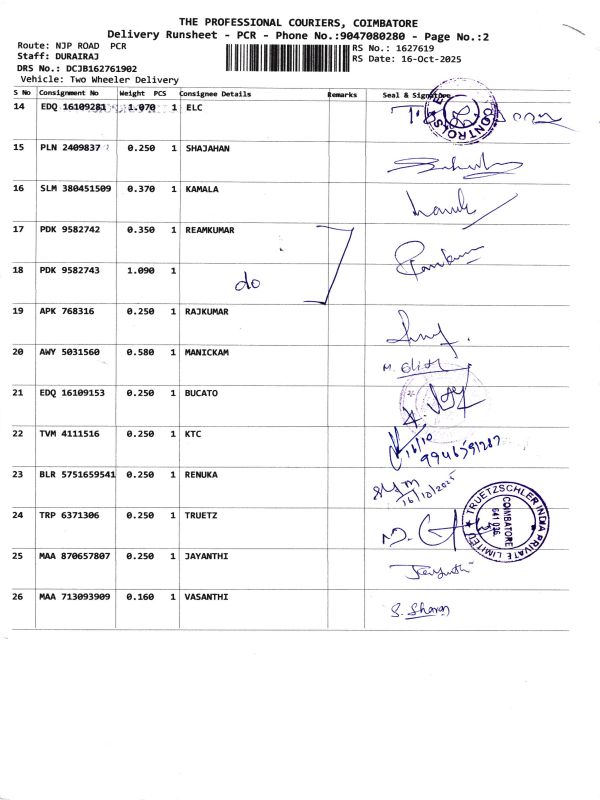 THE PROFESSIONAL COURIERS, COIMBATORE
Delivery Runsheet - PCR - Phone No.:9047080280 - Page No.:2
Route: NJP ROAD PCR
RS No.: 1627619
Staff: DURAIRAJ
RS Date: 16-Oct-2025
DRS No.: DCJB162761902
Vehicle: Two Wheeler Delivery
S No Consignment No Weight PCS Consignee Details Remarks Seal & Signature
14 EDQ 16109281 1.070 1 ELC
CONTROLS
15 PLN 2409837 0.250 1 SHAJAHAN
16 SLM 380451509 0.370 1 KAMALA
17 PDK 9582742 0.350 1 REAMKUMAR
18 PDK 9582743 1.090 1 do
19 APK 768316 0.250 1 RAJKUMAR
20 AWY 5031560 0.580 1 MANICKAM
21 EDQ 16109153 0.250 1 BUCATO
22 TVM 4111516 0.250 1 KTC
16/10
9946591287
23 BLR 5751659541 0.250 1 RENUKA
16/10/2025
24 TRP 6371306 0.250 1 TRUETZ
TRUETZSCHLER INDIA PRIVATE LIMITED
COIMBATORE
641 036
25 MAA 870657807 0.250 1 JAYANTHI Jayanthi
26 MAA 713093909 0.160 1 VASANTHI S. Sharan